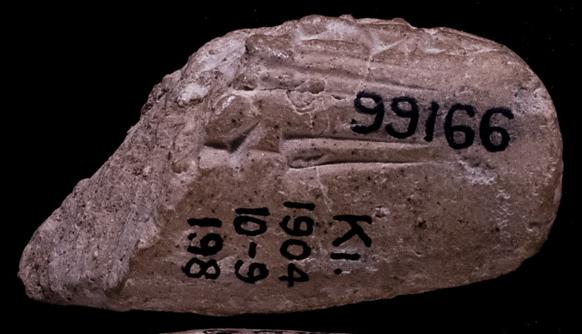 99166
Ki.
1904
10-9
198